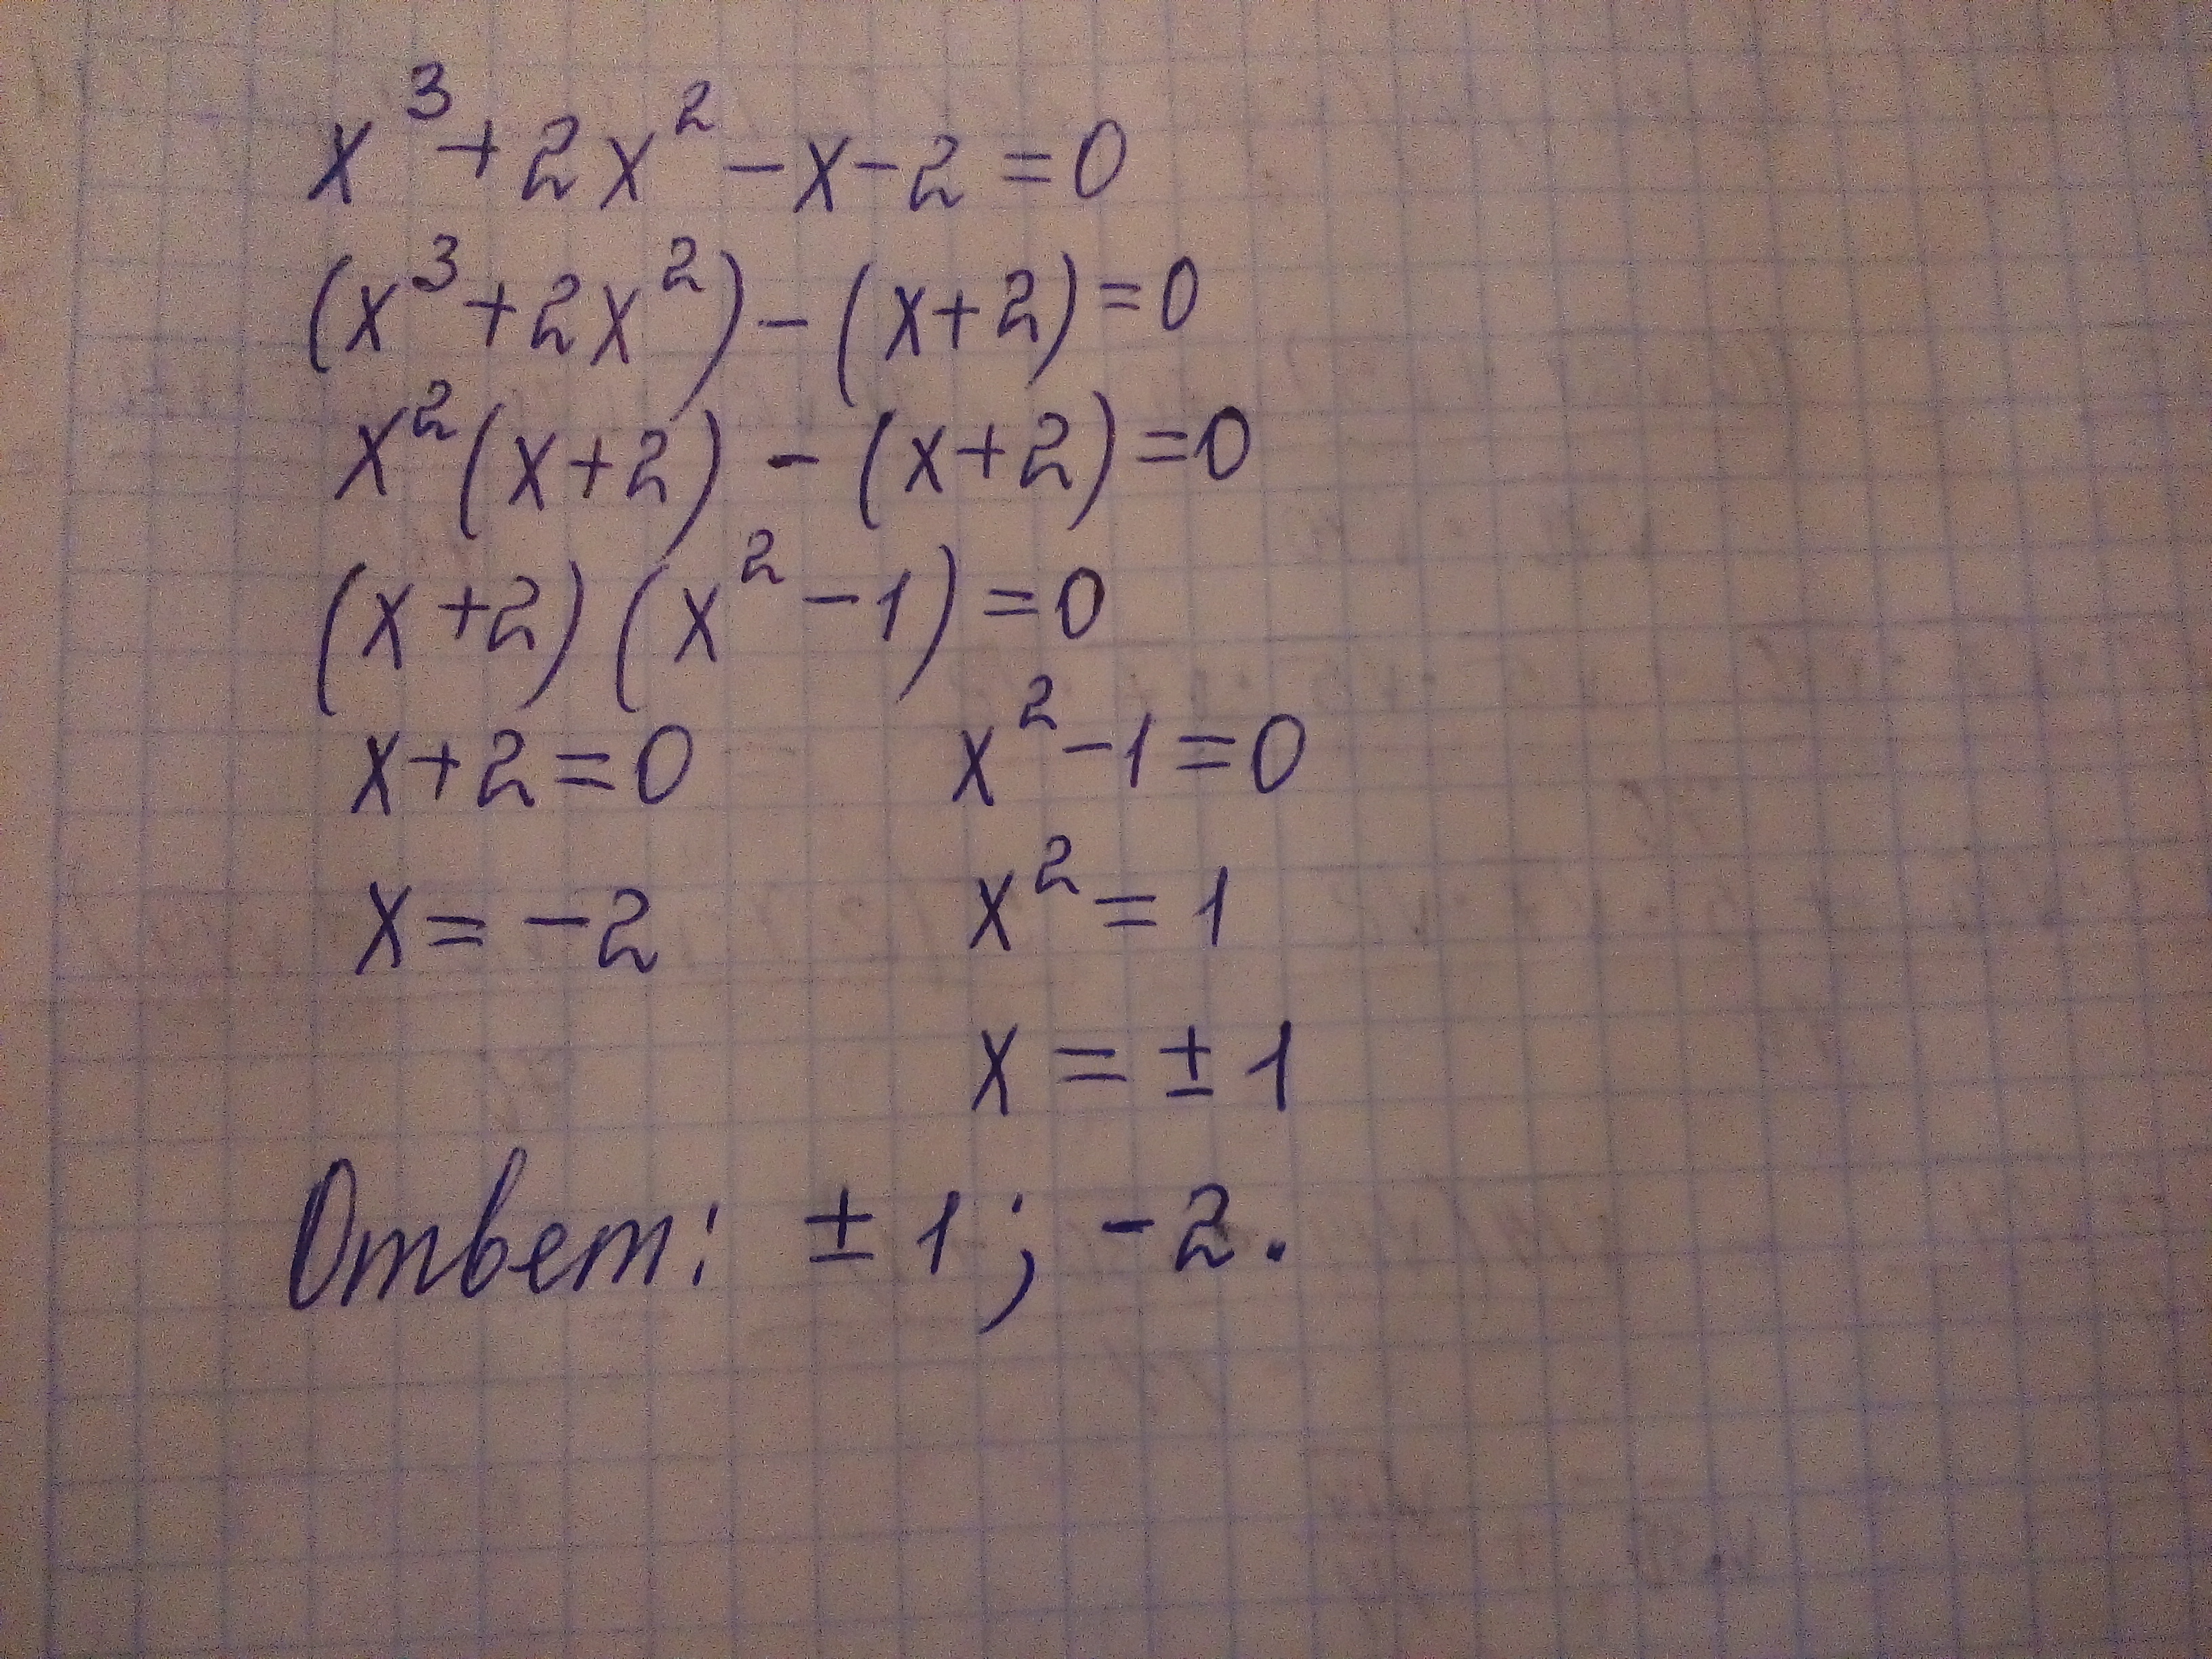 x³+2x²-x-2=0
(x³+2x²)-(x+2)=0
x²(x+2)-(x+2)=0
(x+2)(x²-1)=0
x+2=0 x²-1=0
x=-2 x²=1
x=±1
Ответ: ±1; -2.